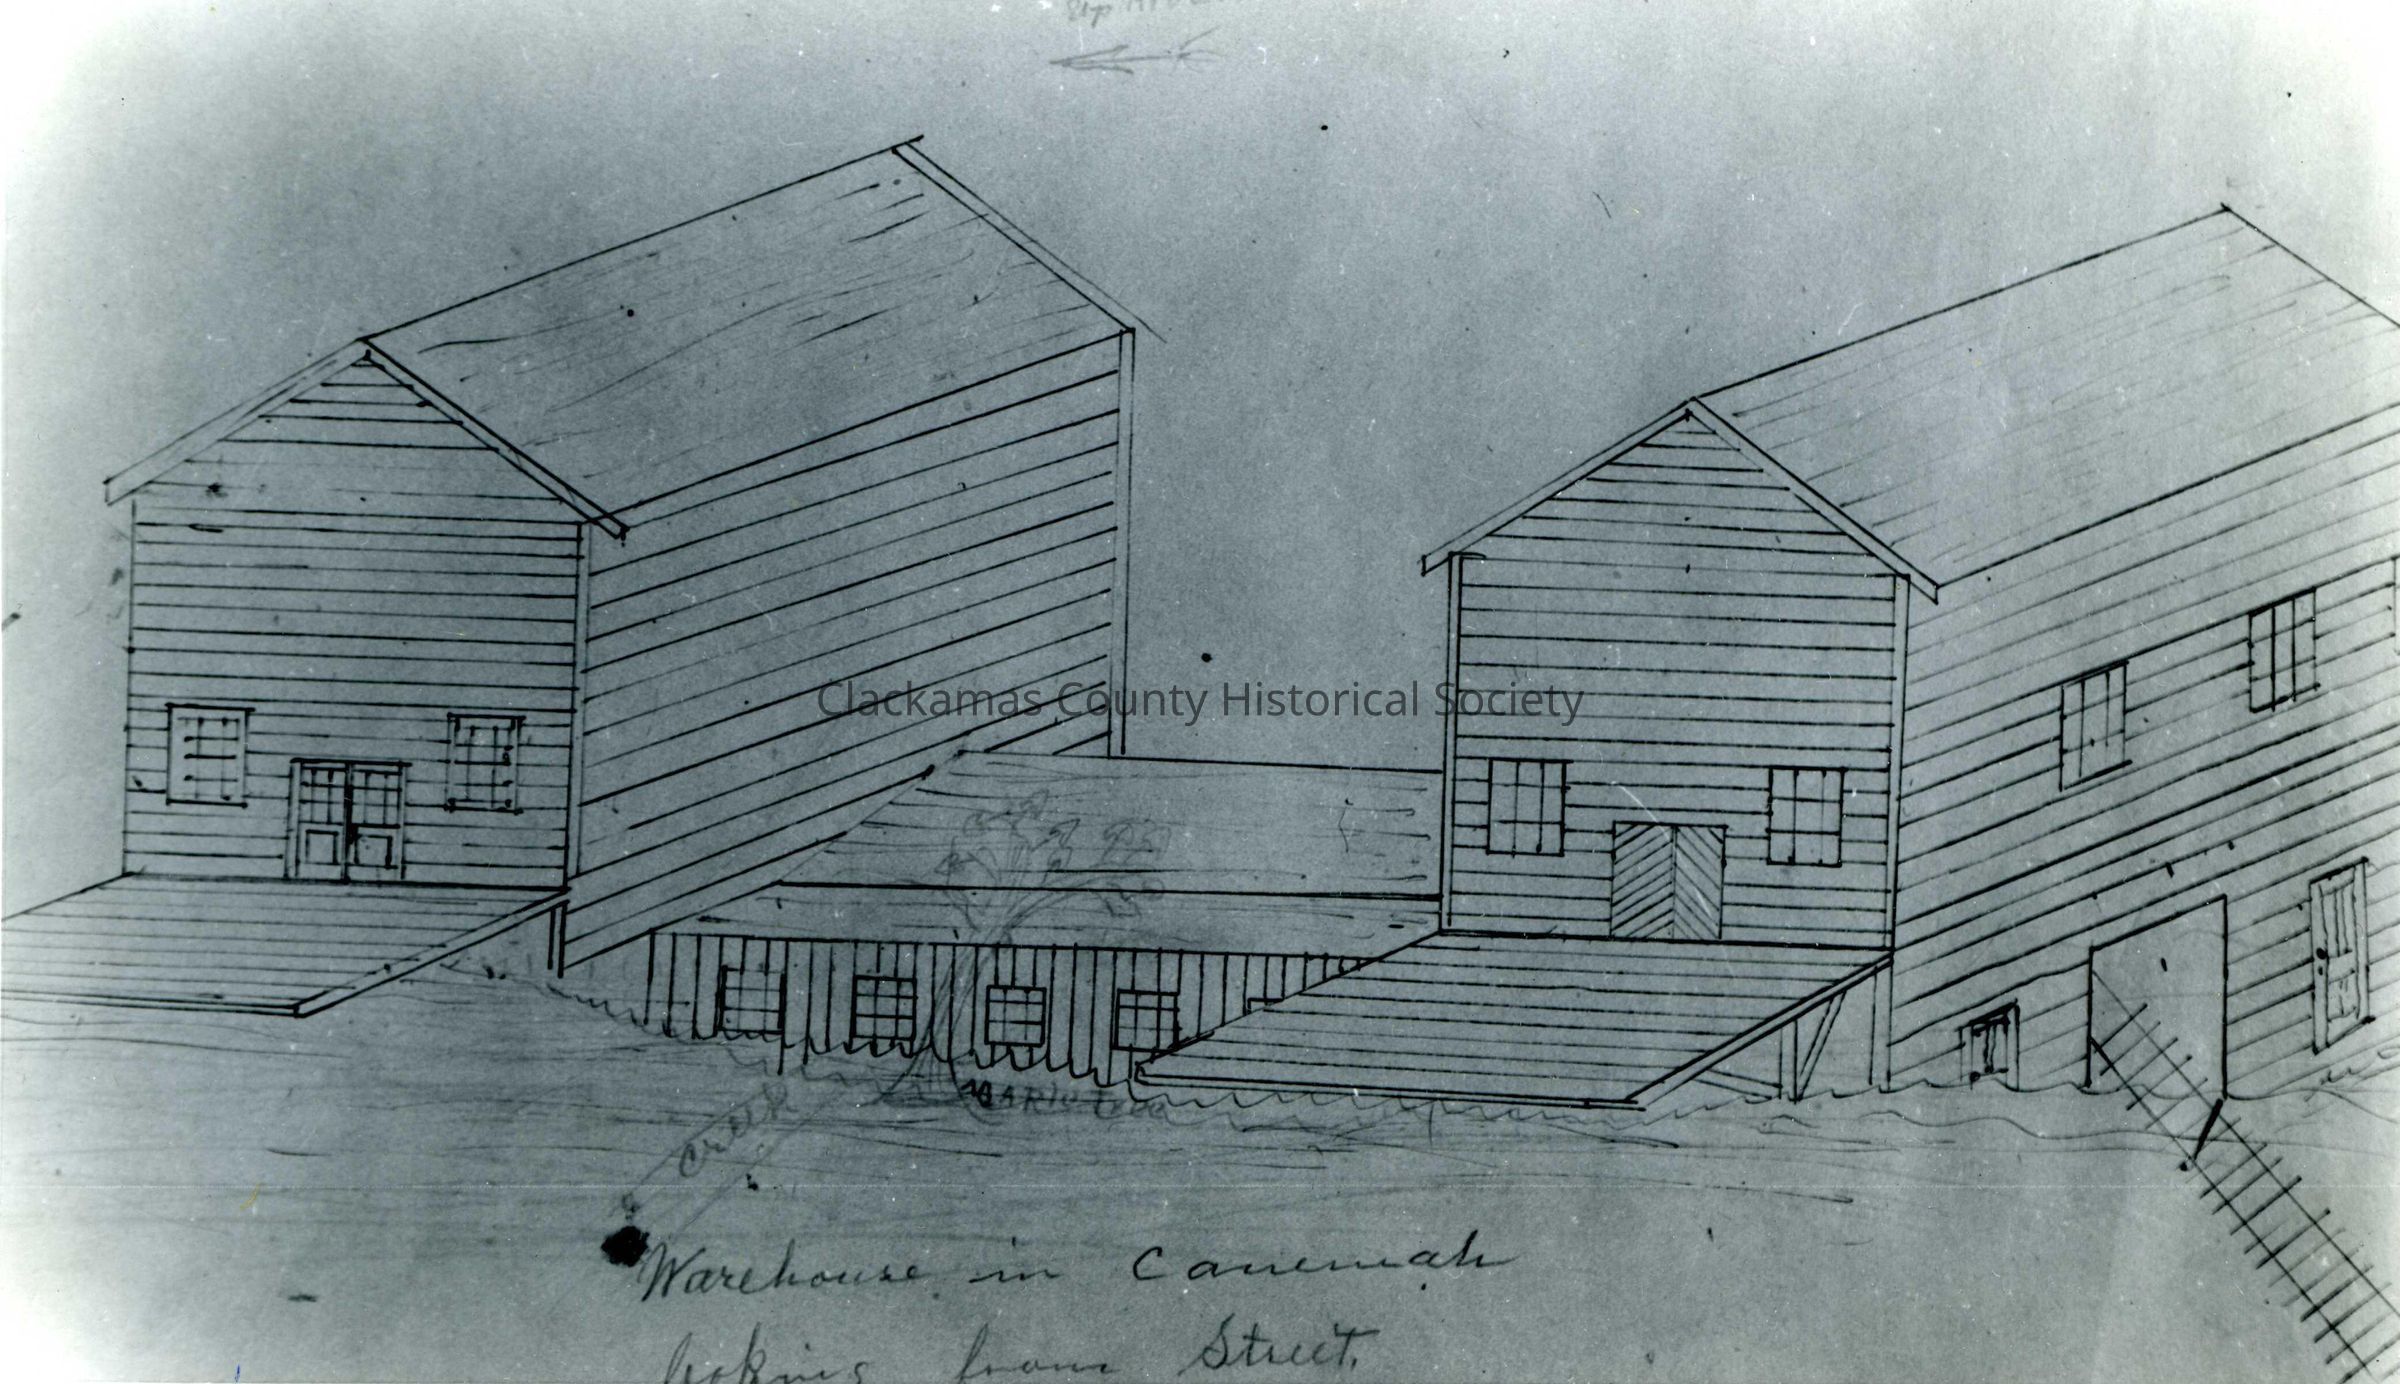 Up River
Clackamas County Historical Society
Creek
Warehouse in Canemah
looking from Street.